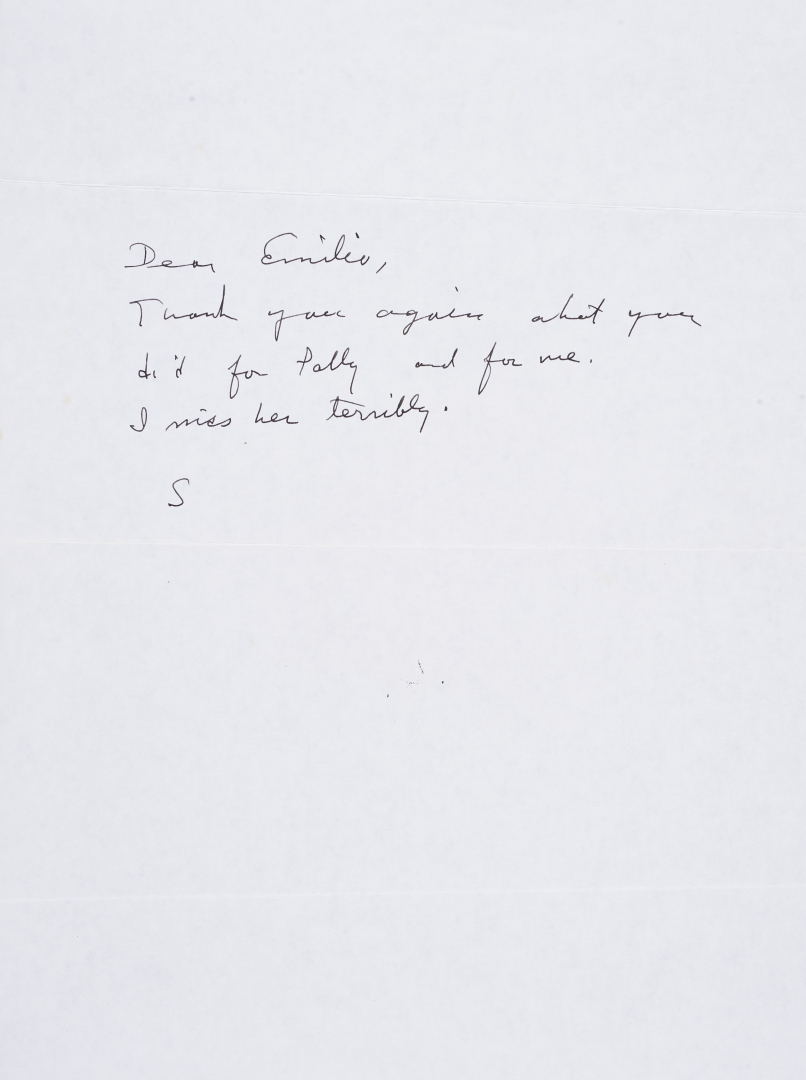 Dear Emilio,
Thank you again what you
did for Patty and for me.
I miss her terribly.
S